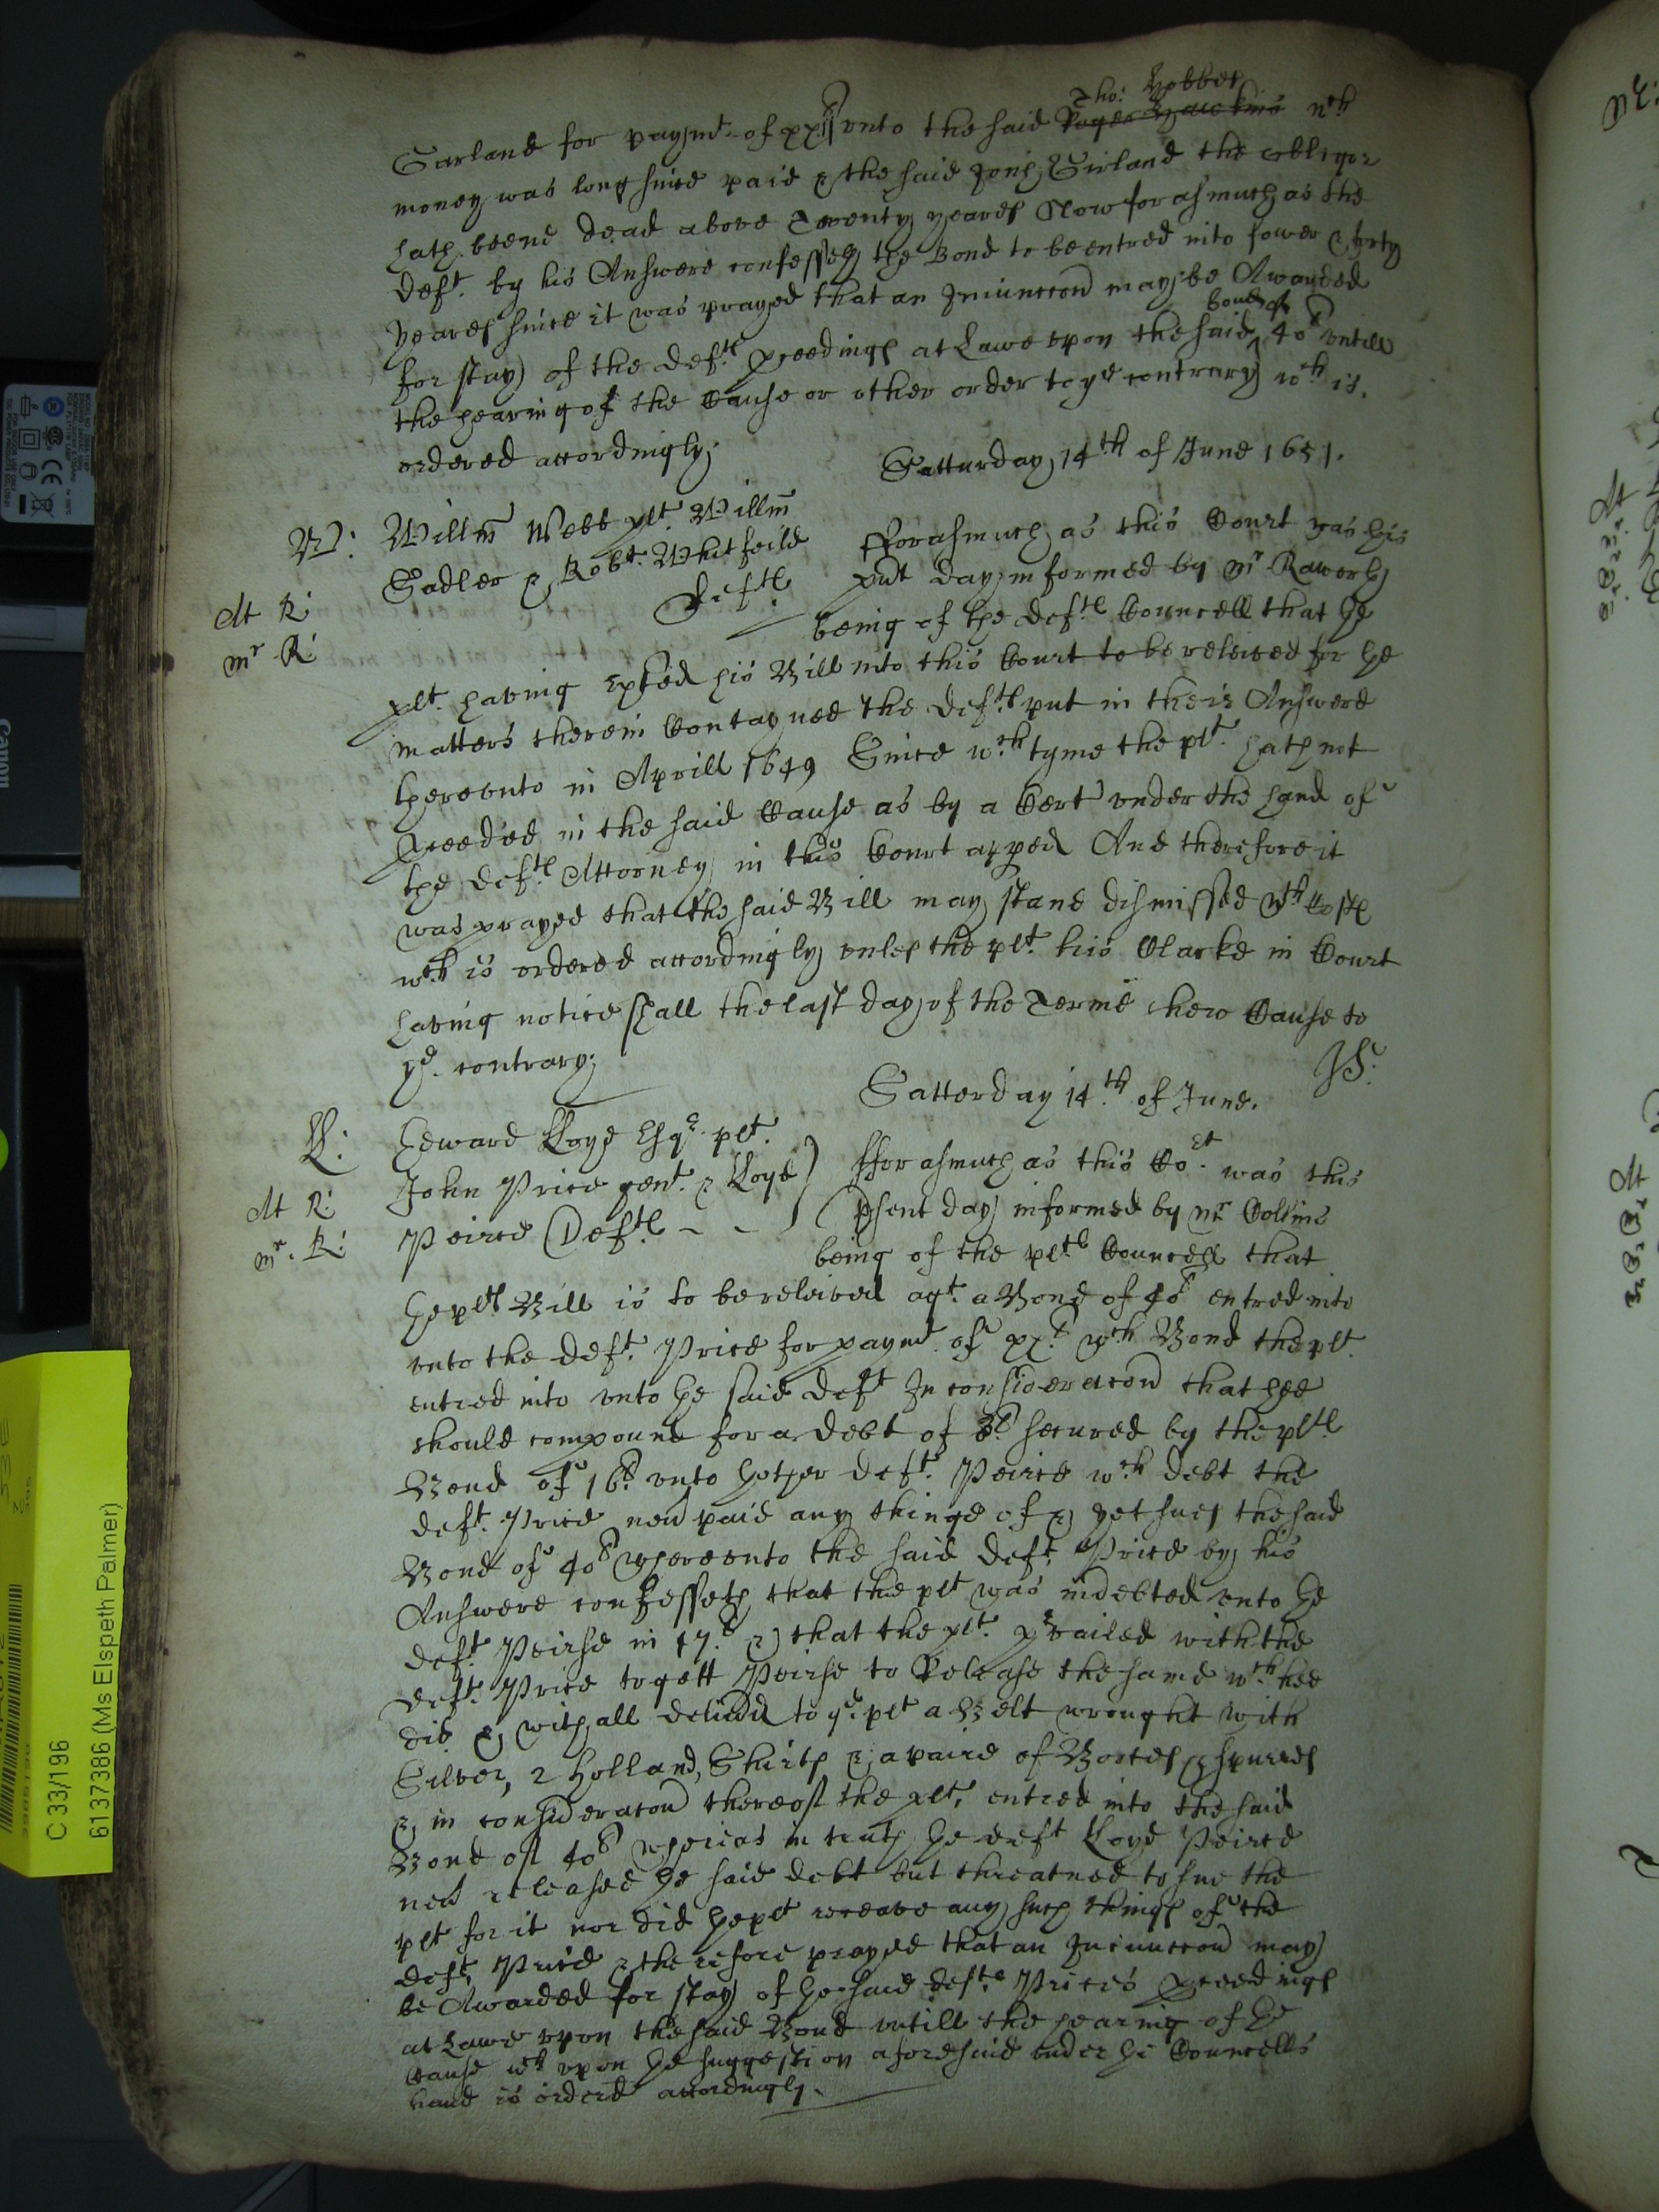 Tho: Hobbes
Garland for paymt of xxli vnto the said Roger Hawkins wch
money was long since paid & the said John Girland the obligor
hath beene dead above Twenty yeares Now forasmuch as the
Deft. by his Answere confesseth the Bond to be entred into fower & forty
yeares since it was prayed that an Iniunccon may be Awarded
bond of
for stay of the Defts proceedings at Lawe vpon the said 40l vntill
the hearing of the Cause or other order to ye contrary wch is.
ordered accordingly.
Satturday 14th of June 1651.
W: Willm Webb plt. Willm
Sadler & Robt. Whitfeild
Defts
At R:
mr R:
Forasmuch as this Court was this
pnt day informed by Mr
being of the Defts Councell that the
plt. having exhited his Bill into this Court to be releived for the
matters therein Contayned The Defts put in their Answere
therevnto in Aprill 1649 Since wch tyme the plt. hath not
proceeded in the said Cause as by a Cert vnder the hand of
the Defts Attorney in this Court apped And therefore it
was prayed that the said Bill may stand dismissed wth Costs
wch is ordered accordingly vnles the plt. his Clarke in Court
having notice shall the last day of the Terme shew Cause to
ye. contrary.
Satterday 14th of June.
Ll: Edward Lloyd Esqr. plt.
John Price gent. & Lloyd
Peirce Defts
At R:
mr. R:
fforasmuch as this Cort. was this
psent day informed by Mr Collins
being of the plts Councell that
the plts Bill is to be releived agt. a Bond of 40l entred into
vnto the Deft. Price for paymt. of xxl. wch Bond the plt.
entred into vnto the said Deft In consideracon that hee
should compound for a debt of 8l. secured by the plts
Bond of 16l. vnto thother Deft. Peirce wch debt the
deft. Price nevr paid any thinge of & yet sues the said
Bond of 40l Wherevnto the said Deft. Price by his
Answere confesseth that the plt was indebted vnto the
Deft. Peirse in 17l. & that the plt. prvailed with the
Deft. Price to gett Peirse to Release the same wch hee
did & withall delivd to ye plt a Belt wrought with
Silver, 2 Holland, Shirts & a paire of Bootes & spurres
& in consideracon thereof the plt. entred into the said
Bond of 40l whereas in truth the deft Lloyd Peirce
nevr released the said debt but threatned to sue the
plt for it nor did the plt receave any such things of the
deft. Price & therefore prayed that an Iniunccon may
be Awarded for stay of the said defte Prices proceedings
at Lawe vpon the said Bond vntill the hearing of the
Cause wch vpon the suggestion aforesaid vnder the Councells
hand is orderd accordingly.
C 33/196
6137386 (Ms Elspeth Palmer)
Canon